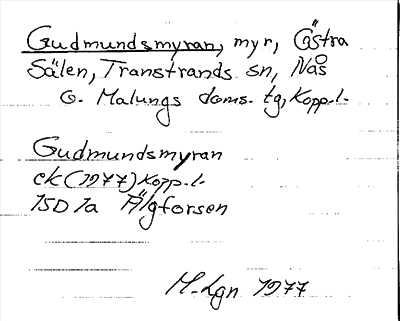 Gudmundsmyran, myr, Östra
Sälen, Transtrands sn, Nås
o. Malungs doms. tg, Kopp.l.
Gudmundsmyran
ek (1977) Kopp.l.
15D 1a Älgforsen
M-Lgn 1977